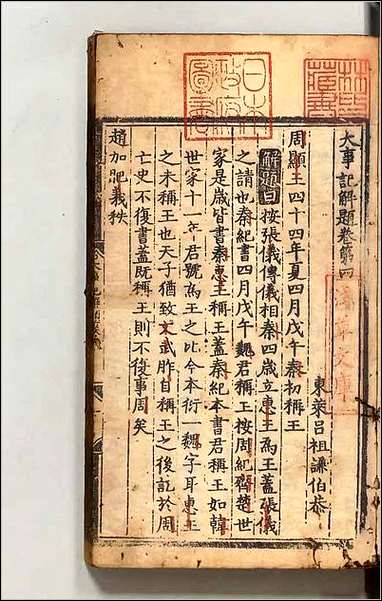 大事記解題卷第四
東萊呂祖謙伯恭
周顯王四十四年夏四月戊午秦初稱王
解題曰按張儀傳儀相秦四歲立惠王爲王蓋張儀
之請也秦紀書四月戊午魏君稱王按周紀齊楚世
家是歲皆書秦惠王稱王蓋秦紀本書君稱王如韓
世家十一年君號爲王之比今本衍一魏字耳惠王
之未稱王也天子猶致文武胙自稱王之後訖於周
亡史不復書蓋既稱王則不復事周矣
趙加肥義秩